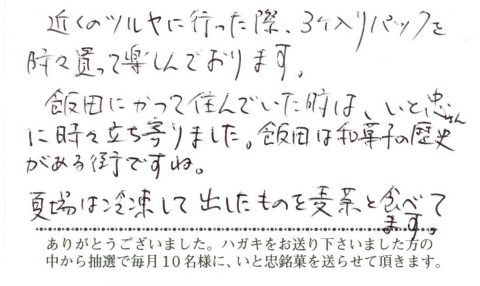 近くのツルヤに行った際、3ケ入りパックを
時々買って楽しんでおります。
飯田にかつて住んでいた時は、いと忠さん
に時々立ち寄りました。飯田は和菓子の歴史
がある街ですね。
夏場は冷凍して出したものを麦茶と食べて
ます。
ありがとうございました。ハガキをお送り下さいました方の
中から抽選で毎月10名様に、いと忠銘菓を送らせて頂きます。